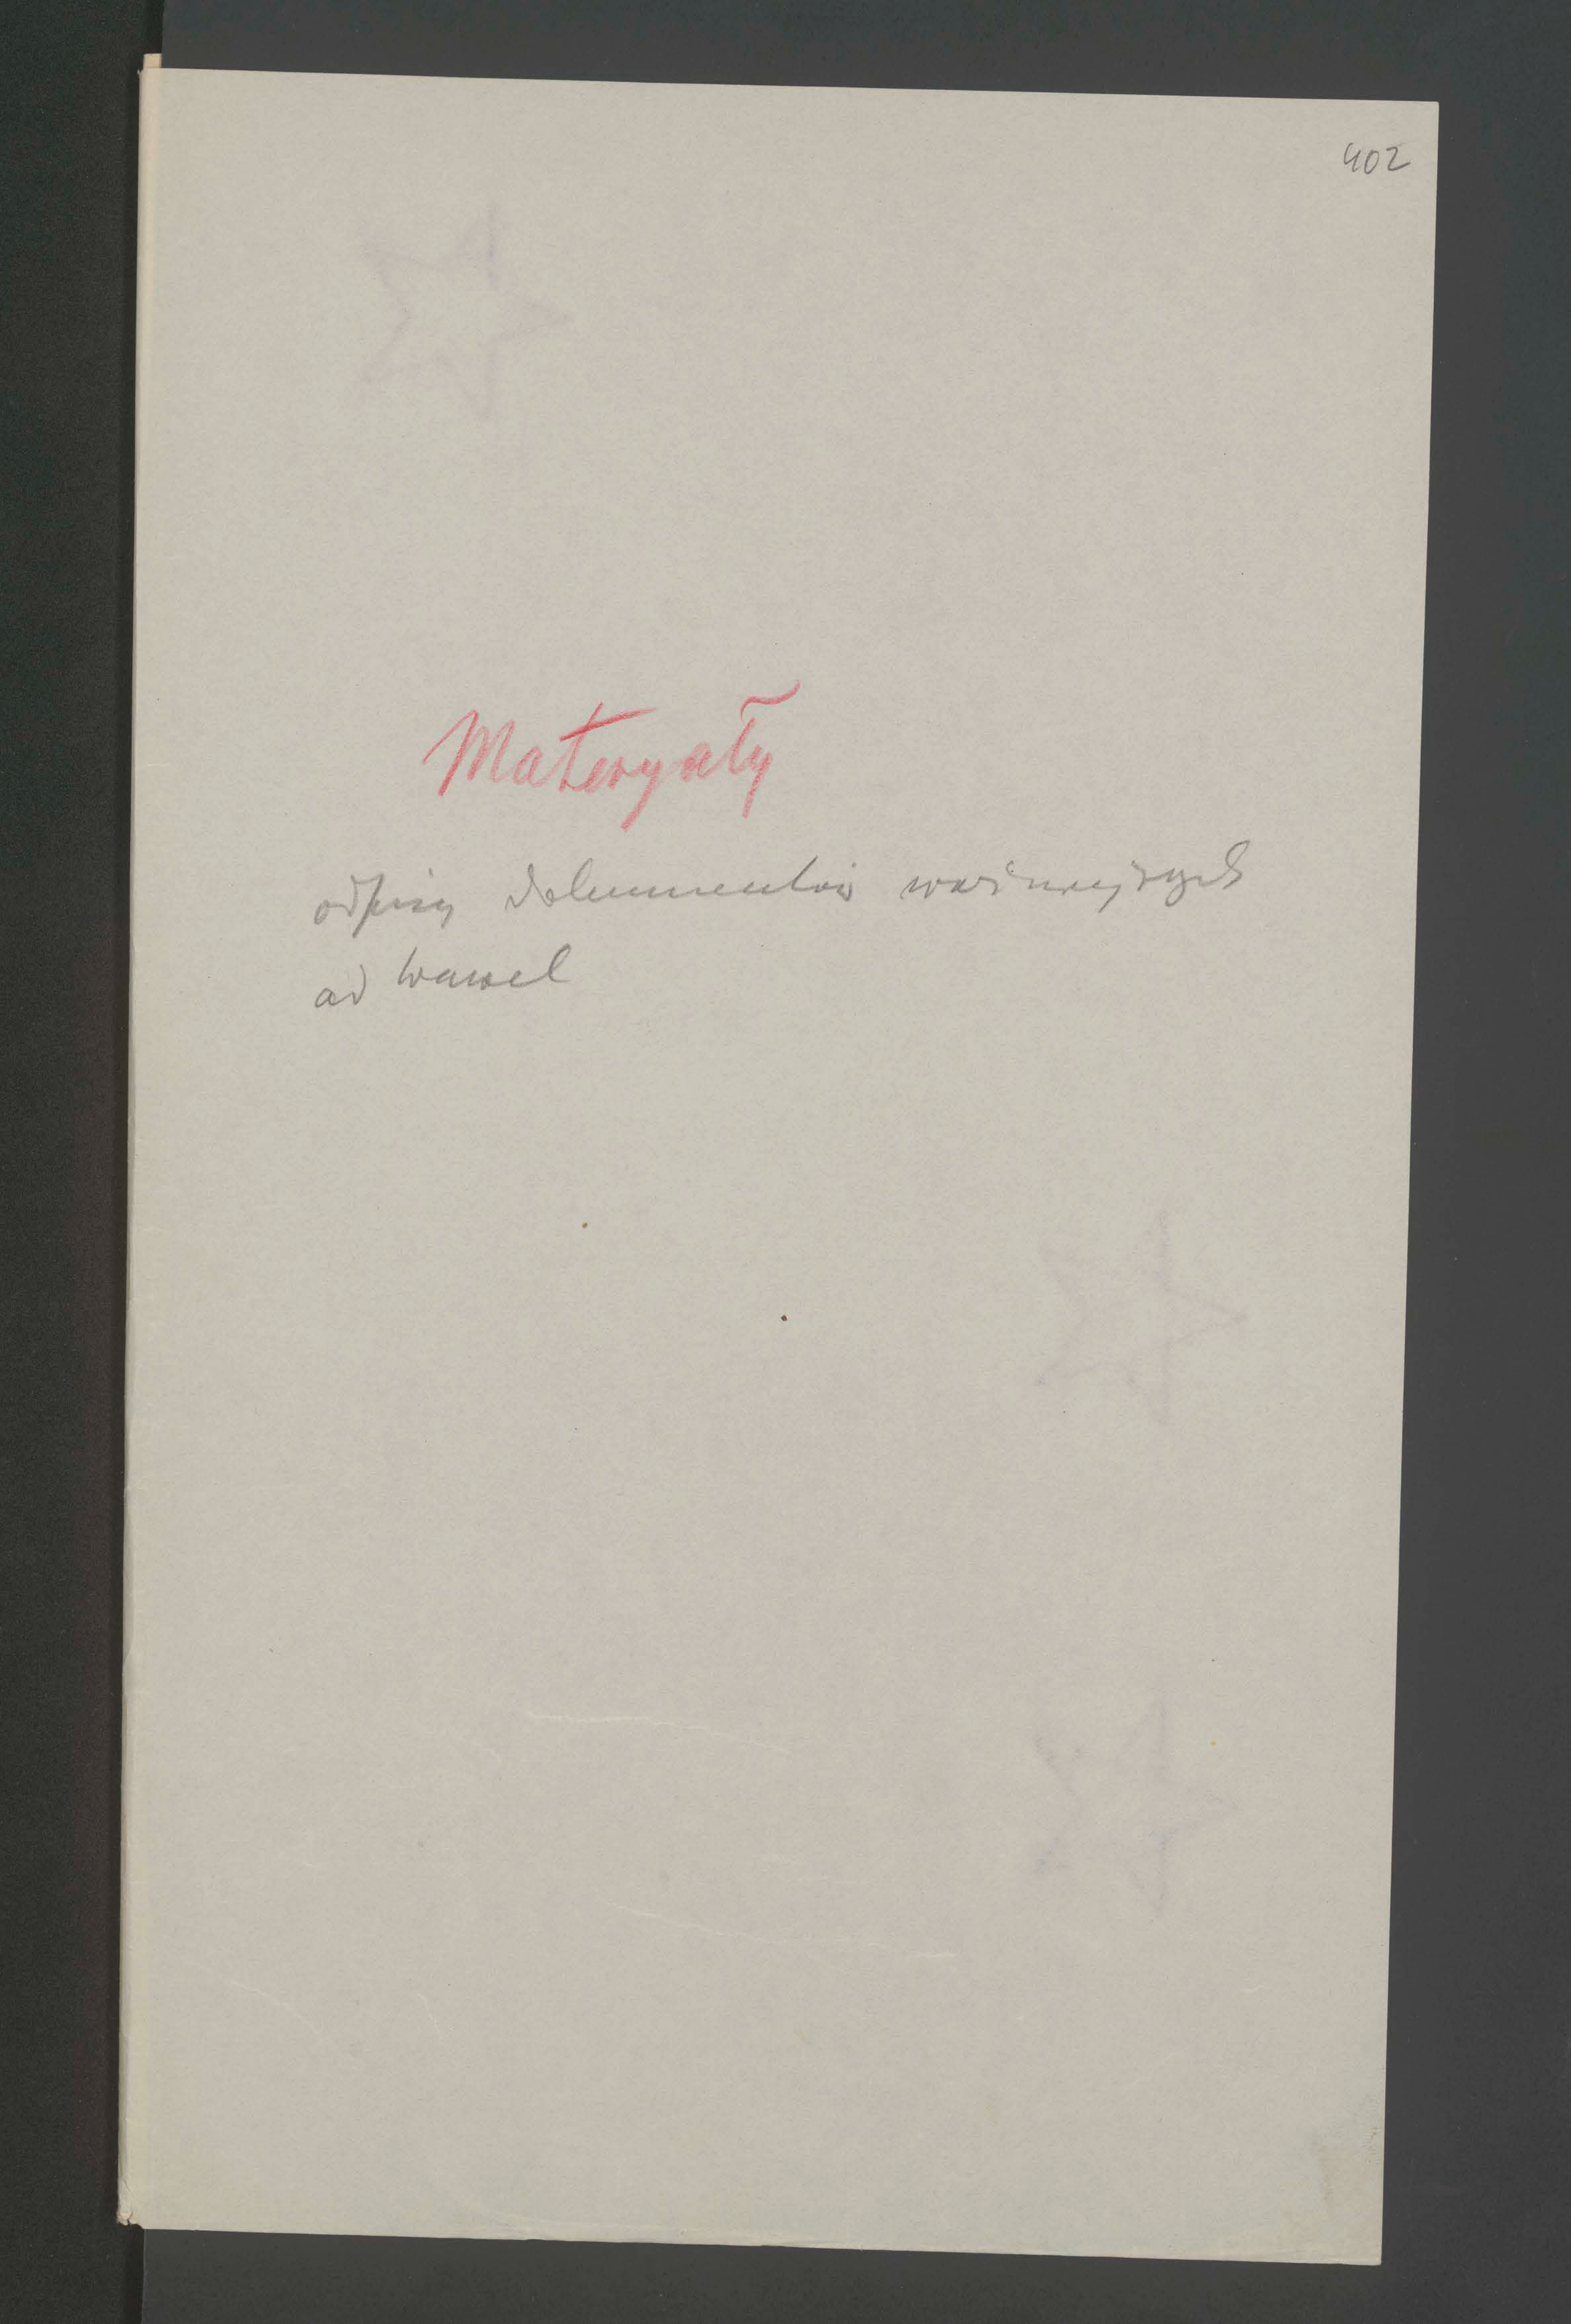 402
Materyały
odpisy dokumentów ważniejszych
ad Wawel